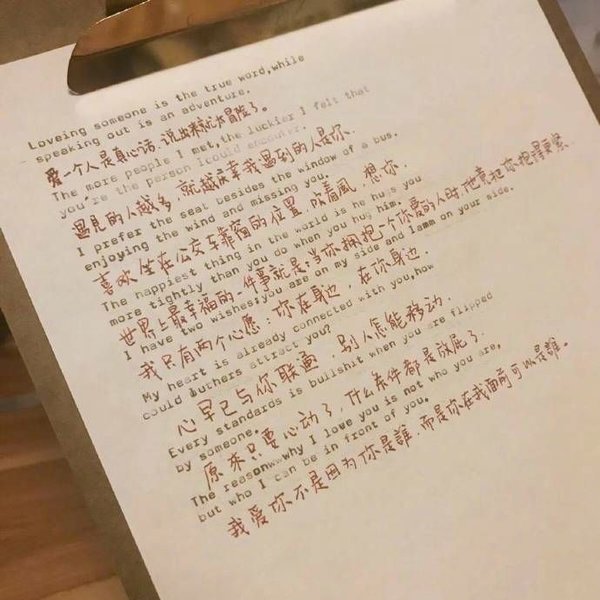 Loveing someone is the true word,while
speaking out is an adventure.
爱一个人是真心话,说出来就大冒险了。
The more people I met,the luckier I felt that
you're the person I could encounter.
遇見的人越多,就越庆幸我遇到的人是你.
I prefer the seat besides the window of a bus.
enjoying the wind and missing you.
喜欢坐在公交车靠窗的位置,吹着風,想你.
The happiest thing in the world is he hugs you
more tightly than you do when you hug him.
世界上最幸福的一件事就是:当你拥抱一个你爱的人时,他竟把你抱得更紧.
I have two wishes:you are on my side and Iamm on your side.
我只有两个心愿:你在身边,在你身边.
My heart is already connected with you,how
could outhers attract you?
心早已与你联通,别人怎能移动.
Every standards is bullshit when you are flipped
by someone.
原来只要心动了,什么条件都是放屁了.
The reasonwwwhy I love you is not who you are,
but who I can be in front of you.
我爱你不是因为你是誰,而是你在我面前可以是誰。